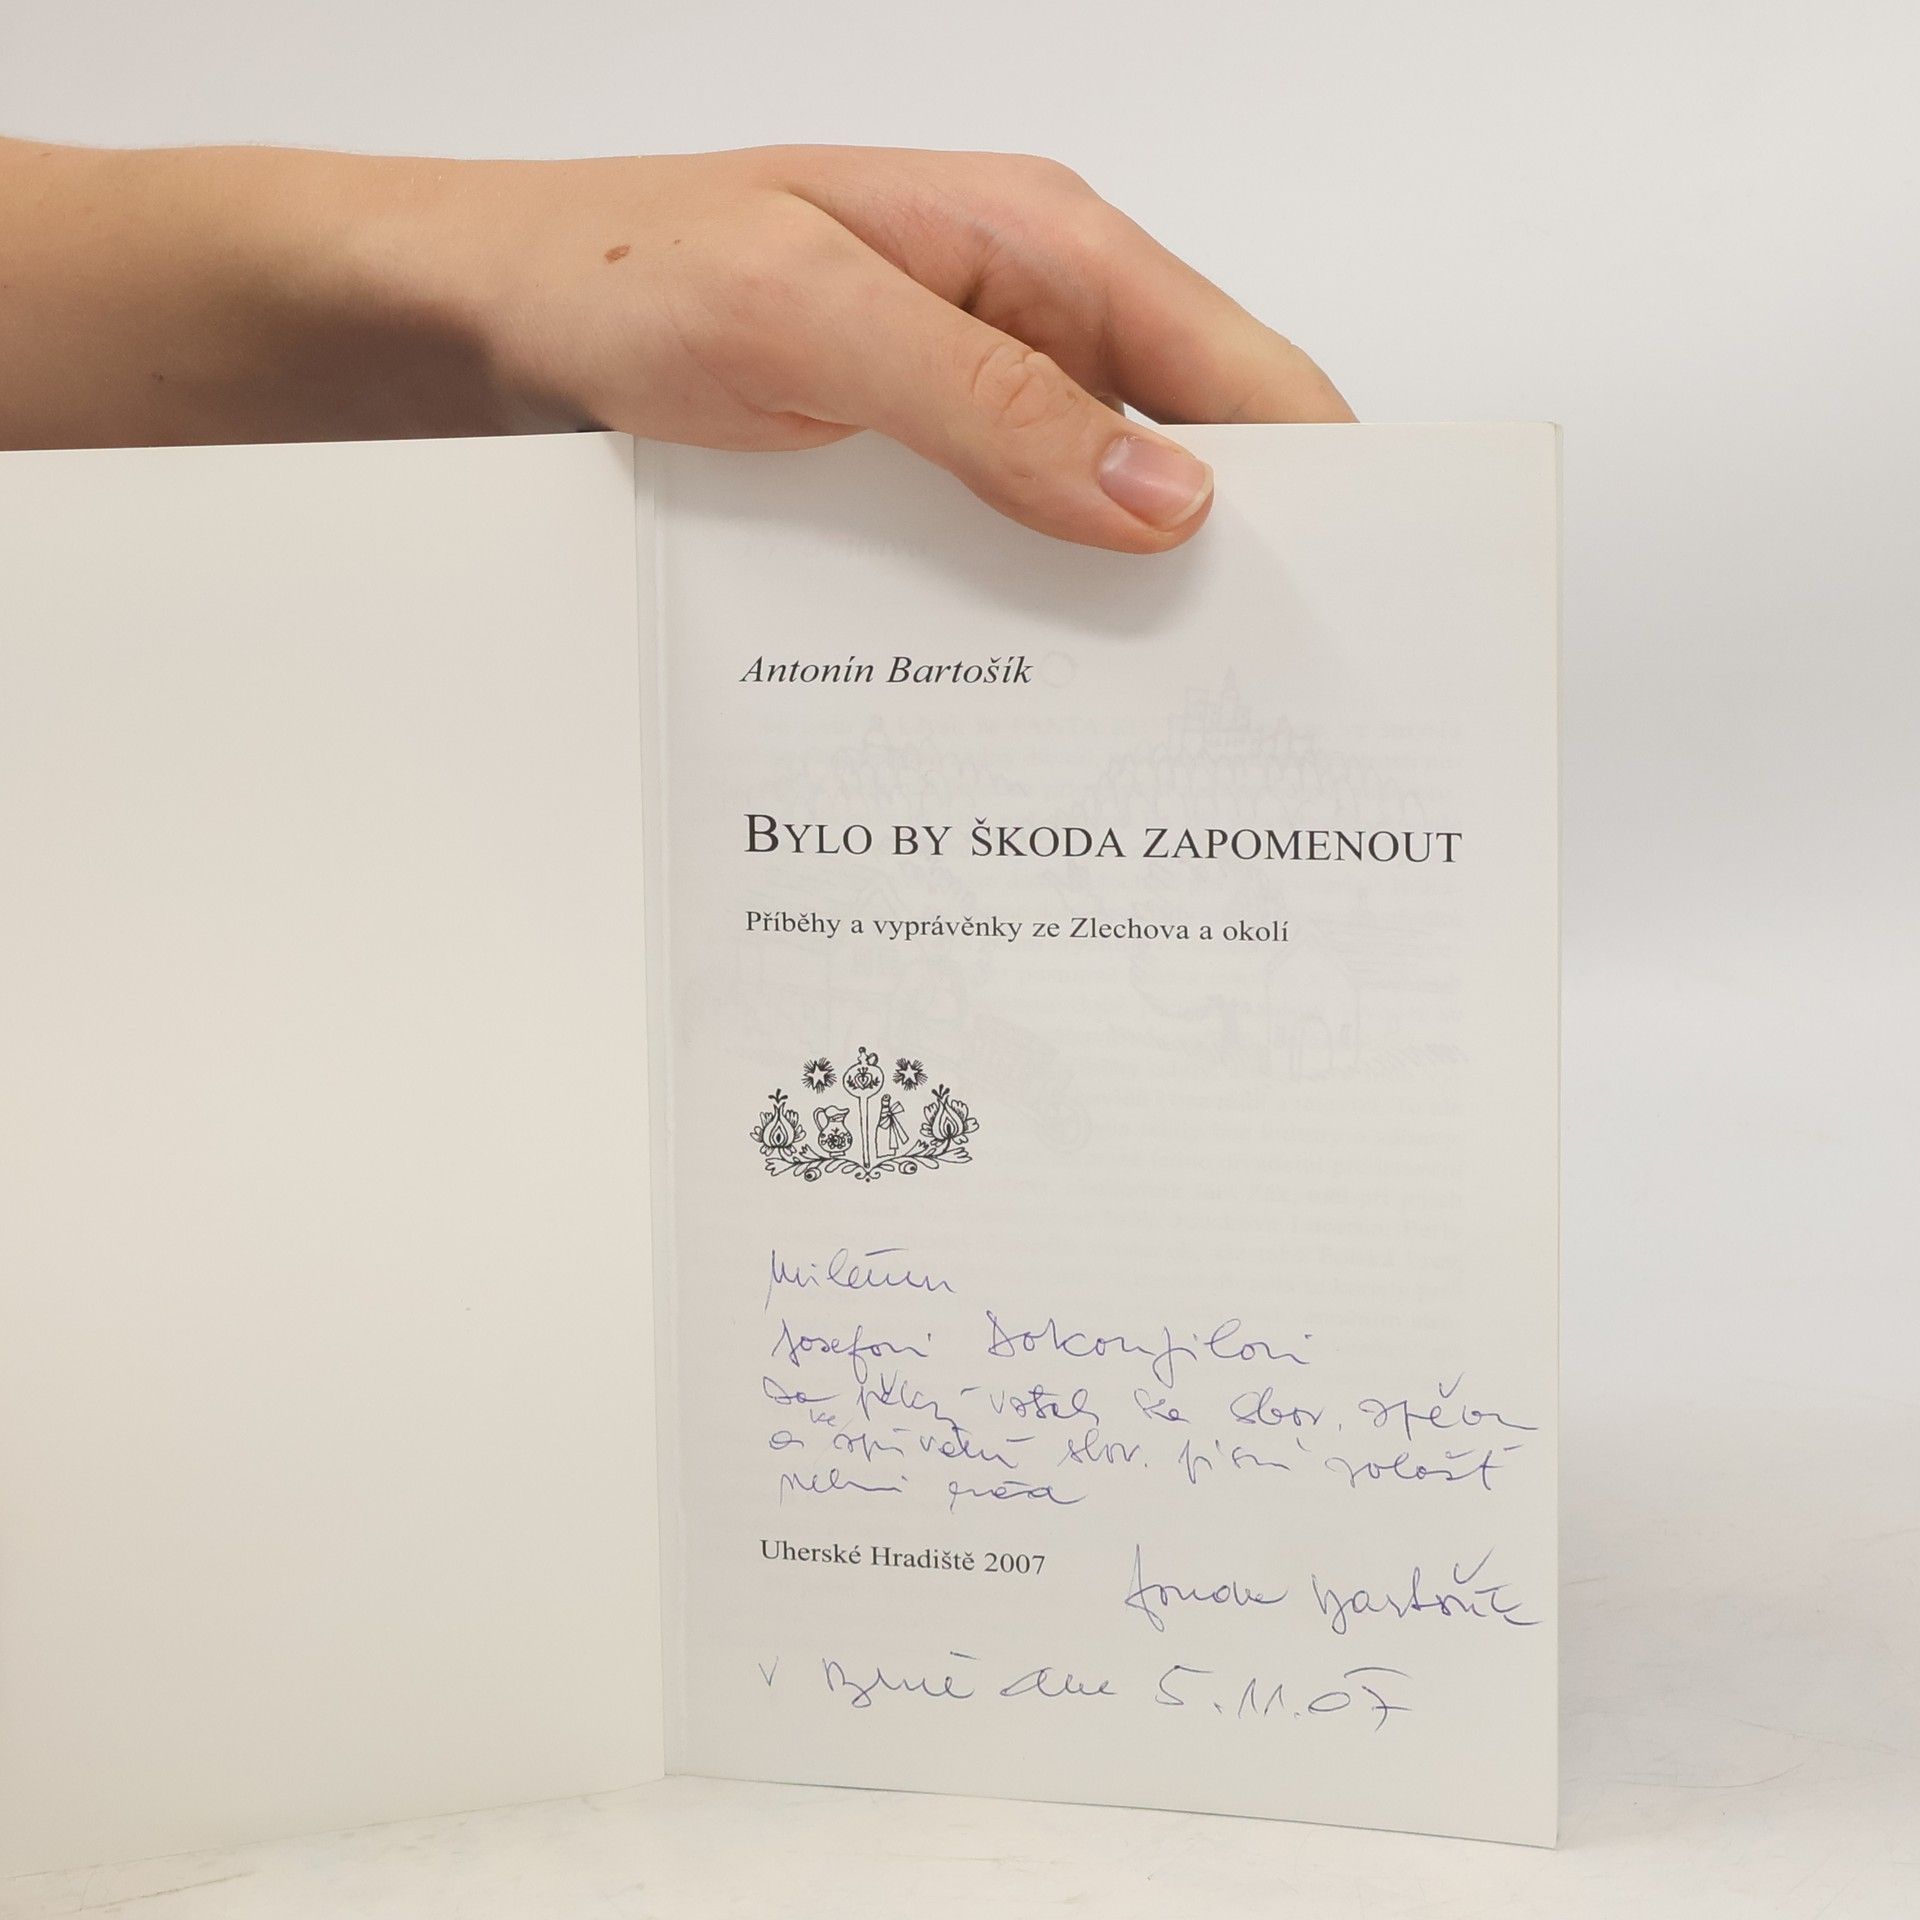 Antonín Bartošík
BYLO BY ŠKODA ZAPOMENOUT
Příběhy a vyprávěnky ze Zlechova a okolí
Milému
Josefovi Dokoupilovi
za pěkný vztah ke sbor. zpěvu
a ke slov. písni zvlášť
Uherské Hradiště 2007
Bartošík
V Brně dne 5.11.07